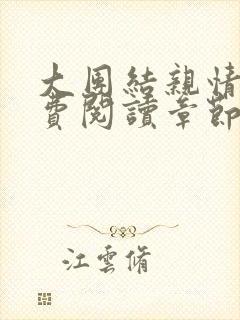 大团結親情
費閱讀章節
江雲脩